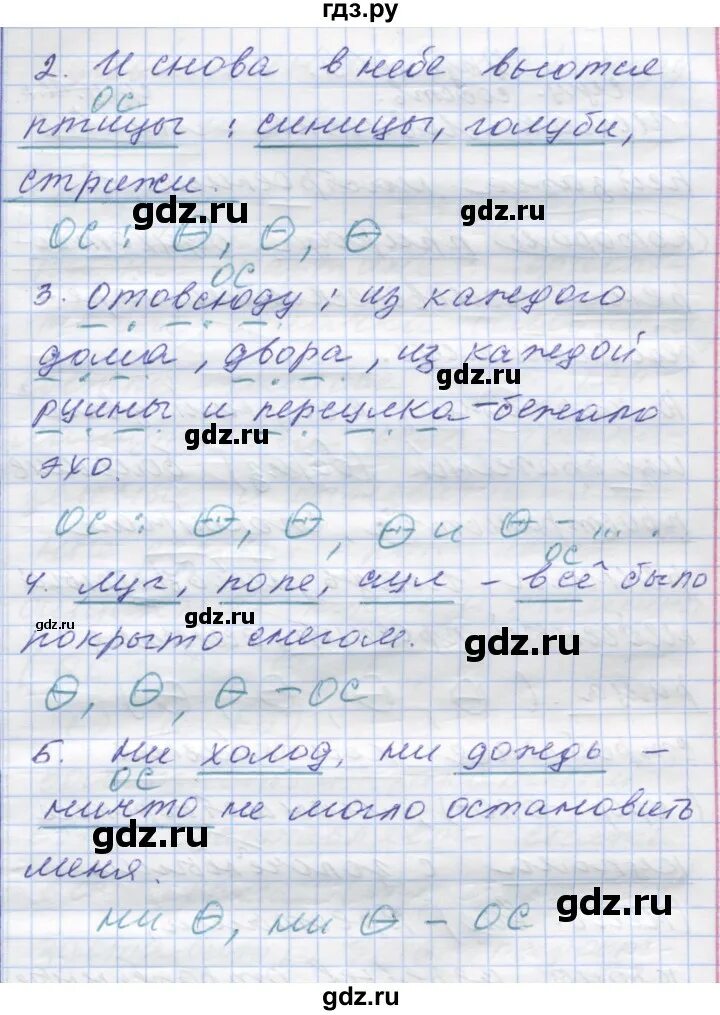 гдз.ру
2. И снова в небе вьются
ОС
птицы : синицы, голуби,
стрижи.
gdz.ru
gdz.ru
ОС : О, О, О
ОС
3. Отовсюду : из каждого
дома, двора, из каждой
gdz.ru
рцины и переулка - бежало
gdz.ru
эхо.
ОС : О, О, О и О - ... .
ОС
4. Луг, поле, аул - всё было
gdz.ru
gdz.ru
gdz.ru
покрыто снегом.
О, О, О - ОС
5. Ни холод, ни дождь -
ОС
ничто не могло остановить
gdz.ru
меня.
gdz.ru
ни О, ни О - ОС
gdz.ru